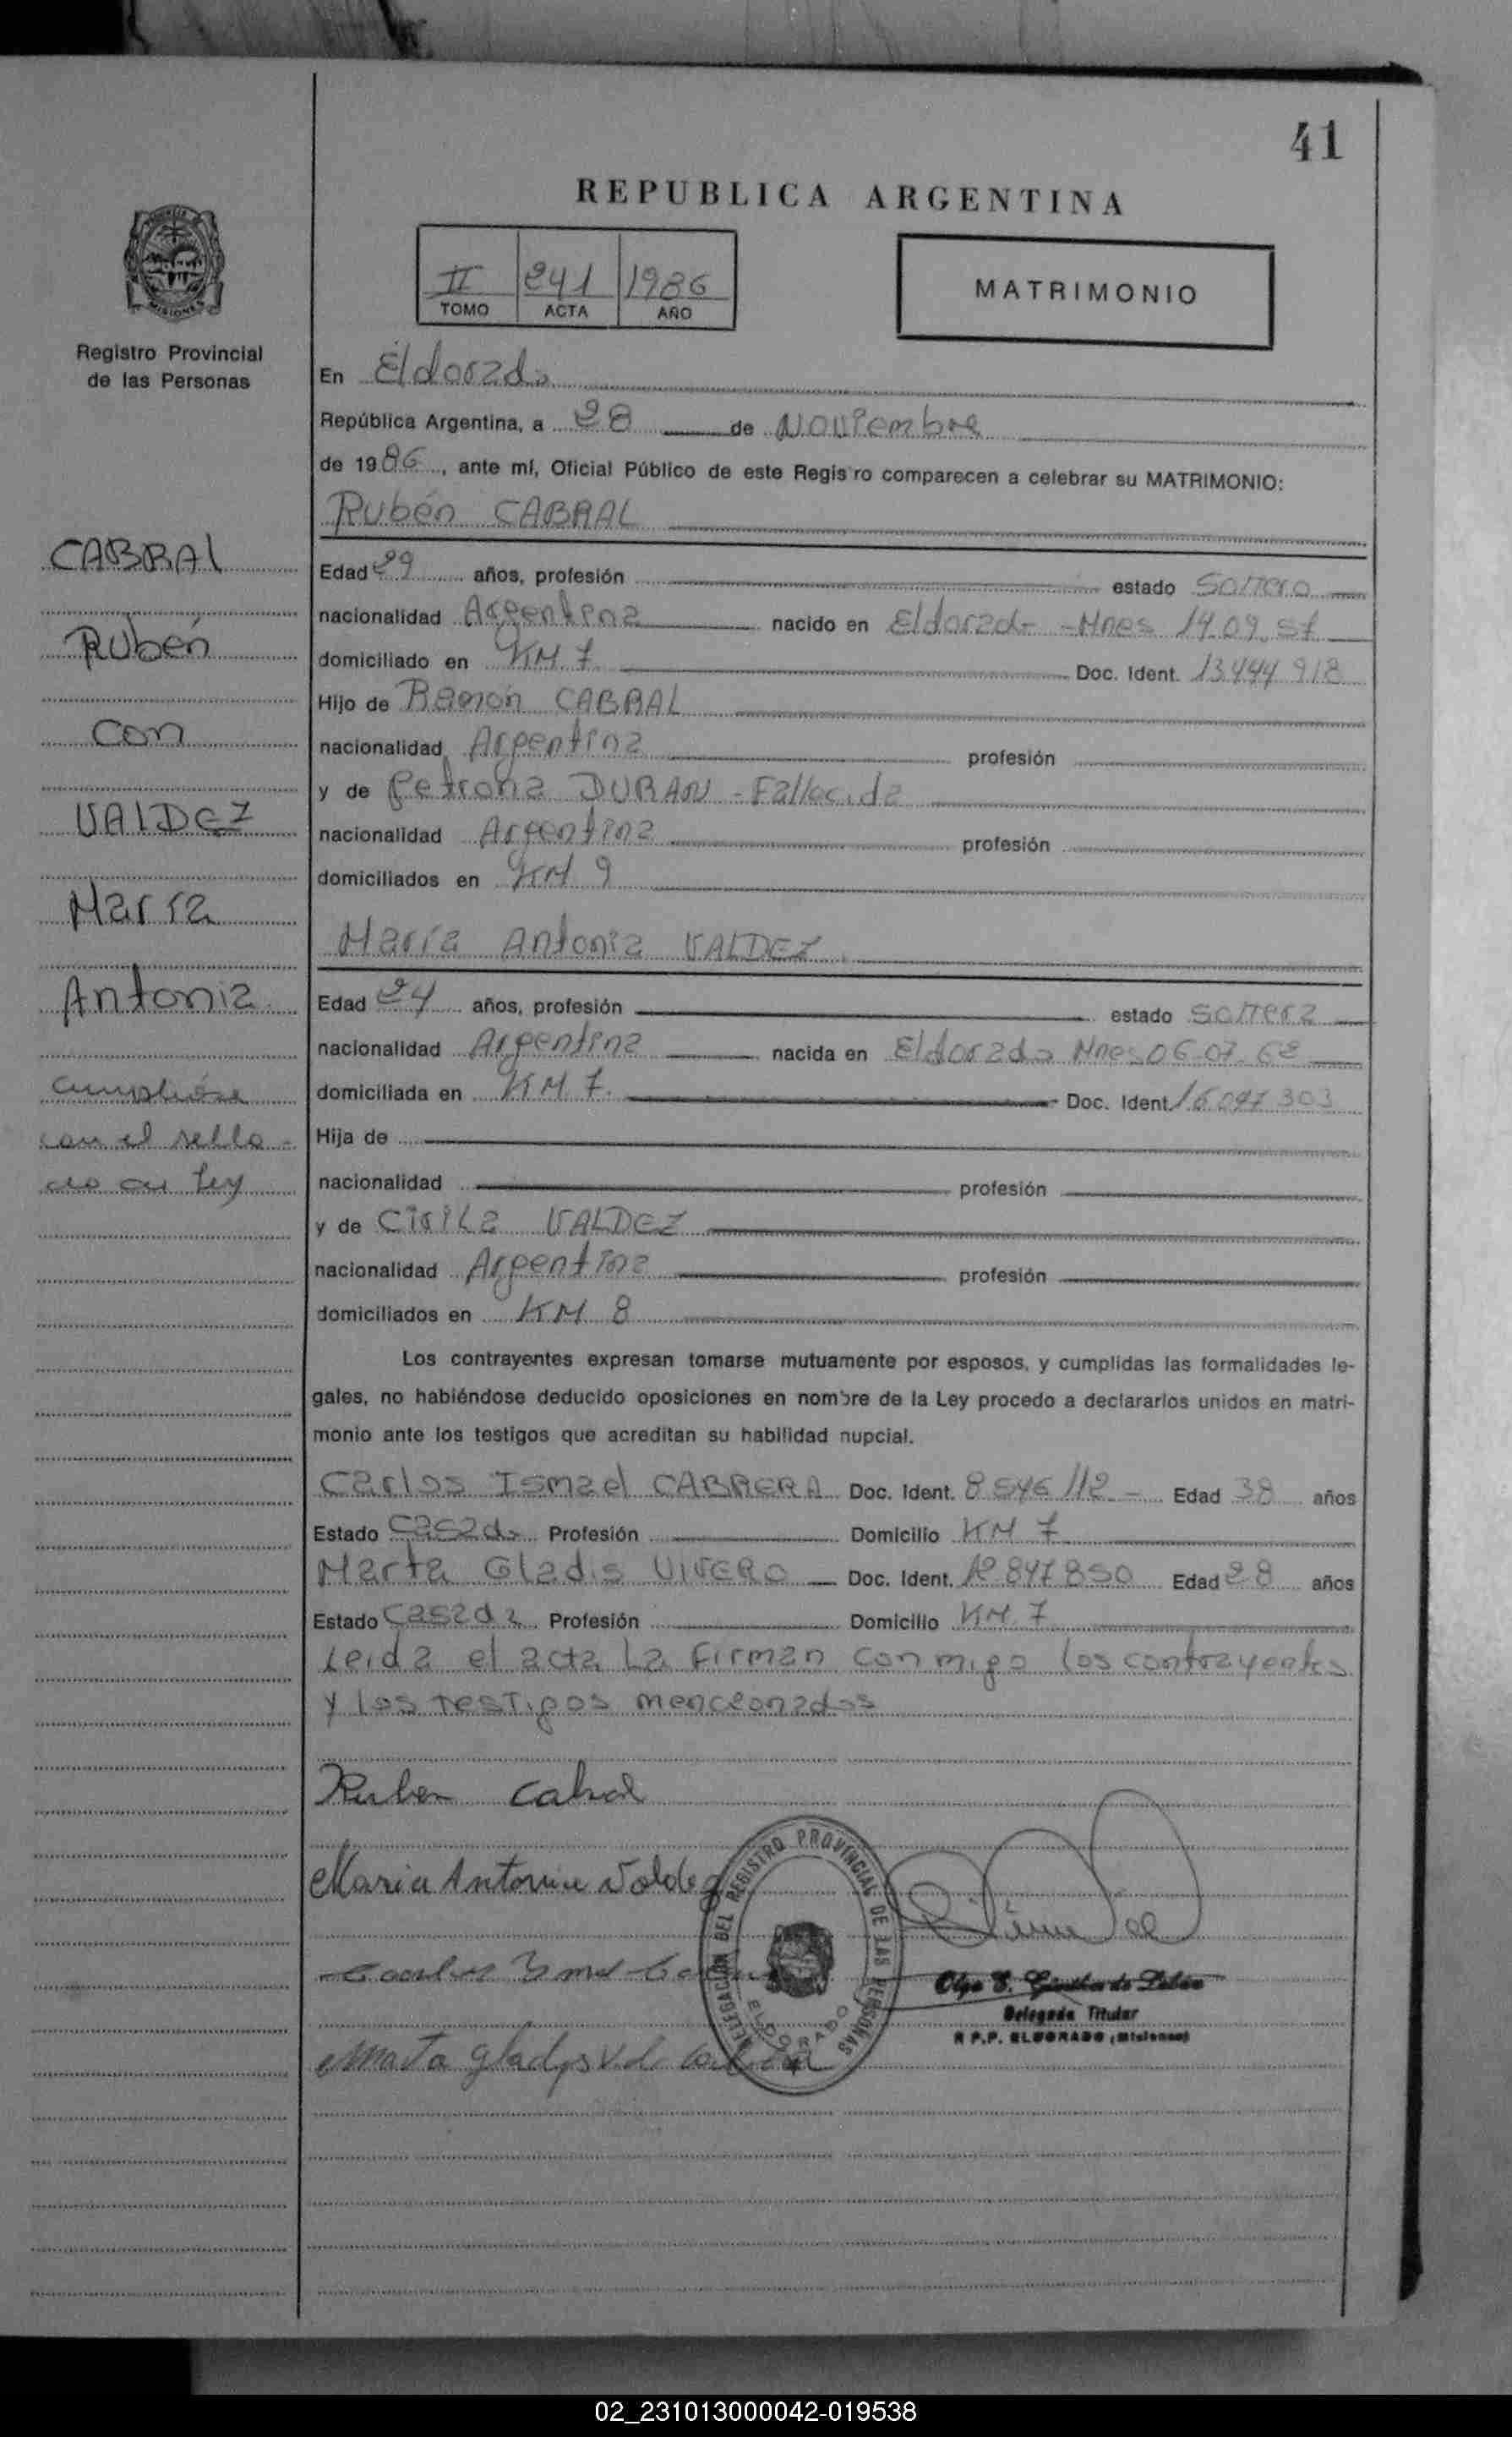 41
REPUBLICA ARGENTINA
II 241 1986
TOMO ACTA AÑO
MATRIMONIO
MISIONES
Registro Provincial
de las Personas
En Eldorado
República Argentina, a 28 de Noviembre
de 1986, ante mí, Oficial Público de este Registro comparecen a celebrar su MATRIMONIO:
Rubén CABRAL
CABRAL
Rubén
con
VALDEZ
María
Antonia
Cumplióse
con el sellado
de Ley
Edad 29 años, profesión estado Soltero
nacionalidad Argentina nacido en Eldorado - Mnes 14.09.57
domiciliado en KM 7 Doc. Ident. 13.444.918
Hijo de Ramón CABRAL
nacionalidad Argentina profesión
y de Petrona DURAN - Fallecida
nacionalidad Argentina profesión
domiciliados en KM 9
María Antonia VALDEZ
Edad 24 años, profesión estado Soltera
nacionalidad Argentina nacida en Eldorado Mnes 06-07-62
domiciliada en KM 7. Doc. Ident. 16.097.303
Hija de
nacionalidad profesión
y de Cirila VALDEZ
nacionalidad Argentina profesión
domiciliados en KM 8
Los contrayentes expresan tomarse mutuamente por esposos, y cumplidas las formalidades le-
gales, no habiéndose deducido oposiciones en nombre de la Ley procedo a declararlos unidos en matri-
monio ante los testigos que acreditan su habilidad nupcial.
Carlos Ismael CABRERA Doc. Ident. 8.546.112 - Edad 38 años
Estado Casado Profesión Domicilio KM 7
Marta Gladis VIVERO Doc. Ident. 12.847.850 Edad 28 años
Estado Casada Profesión Domicilio KM 7
Leida el acta La Firman conmigo los contrayentes
y los testigos mencionados
Ruben Cabral
Maria Antonia Valdez
DELEGACIÓN DEL REGISTRO PROVINCIAL DE LAS PERSONAS
ELDORADO
Carlos Ismael
Marta Gladys V. de
Delegada Titular
R.P.P. ELDORADO (Misiones)
02_231013000042-019538